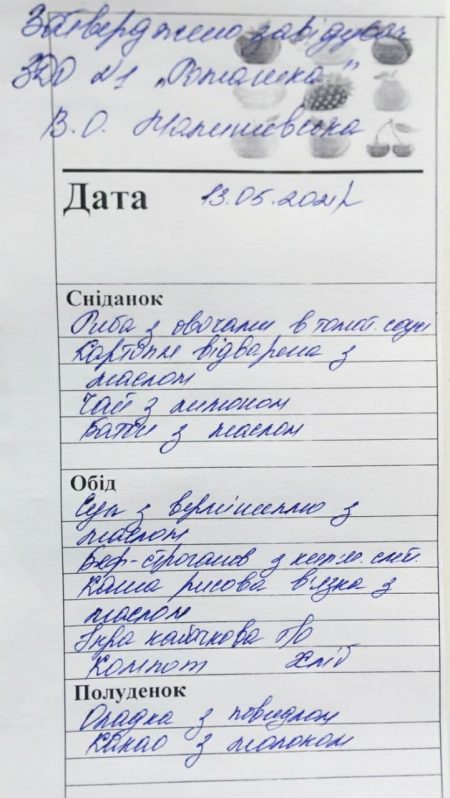 Затверджено завідувач
ЗДО №1 "Ромашка"
В.О.
Дата 13.05.2021р
Сніданок
Риба з овочами в томат. соусі
Картопля відварена з
маслом
Чай з лимоном
Батон з маслом
Обід
Суп з вермішеллю з
маслом
Беф-строганов з кур.м. смет.
Каша рисова в'язка з
маслом
Ікра кабачкова п/о
Компот Хліб
Полуденок
Оладка з повидлом
Какао з молоком